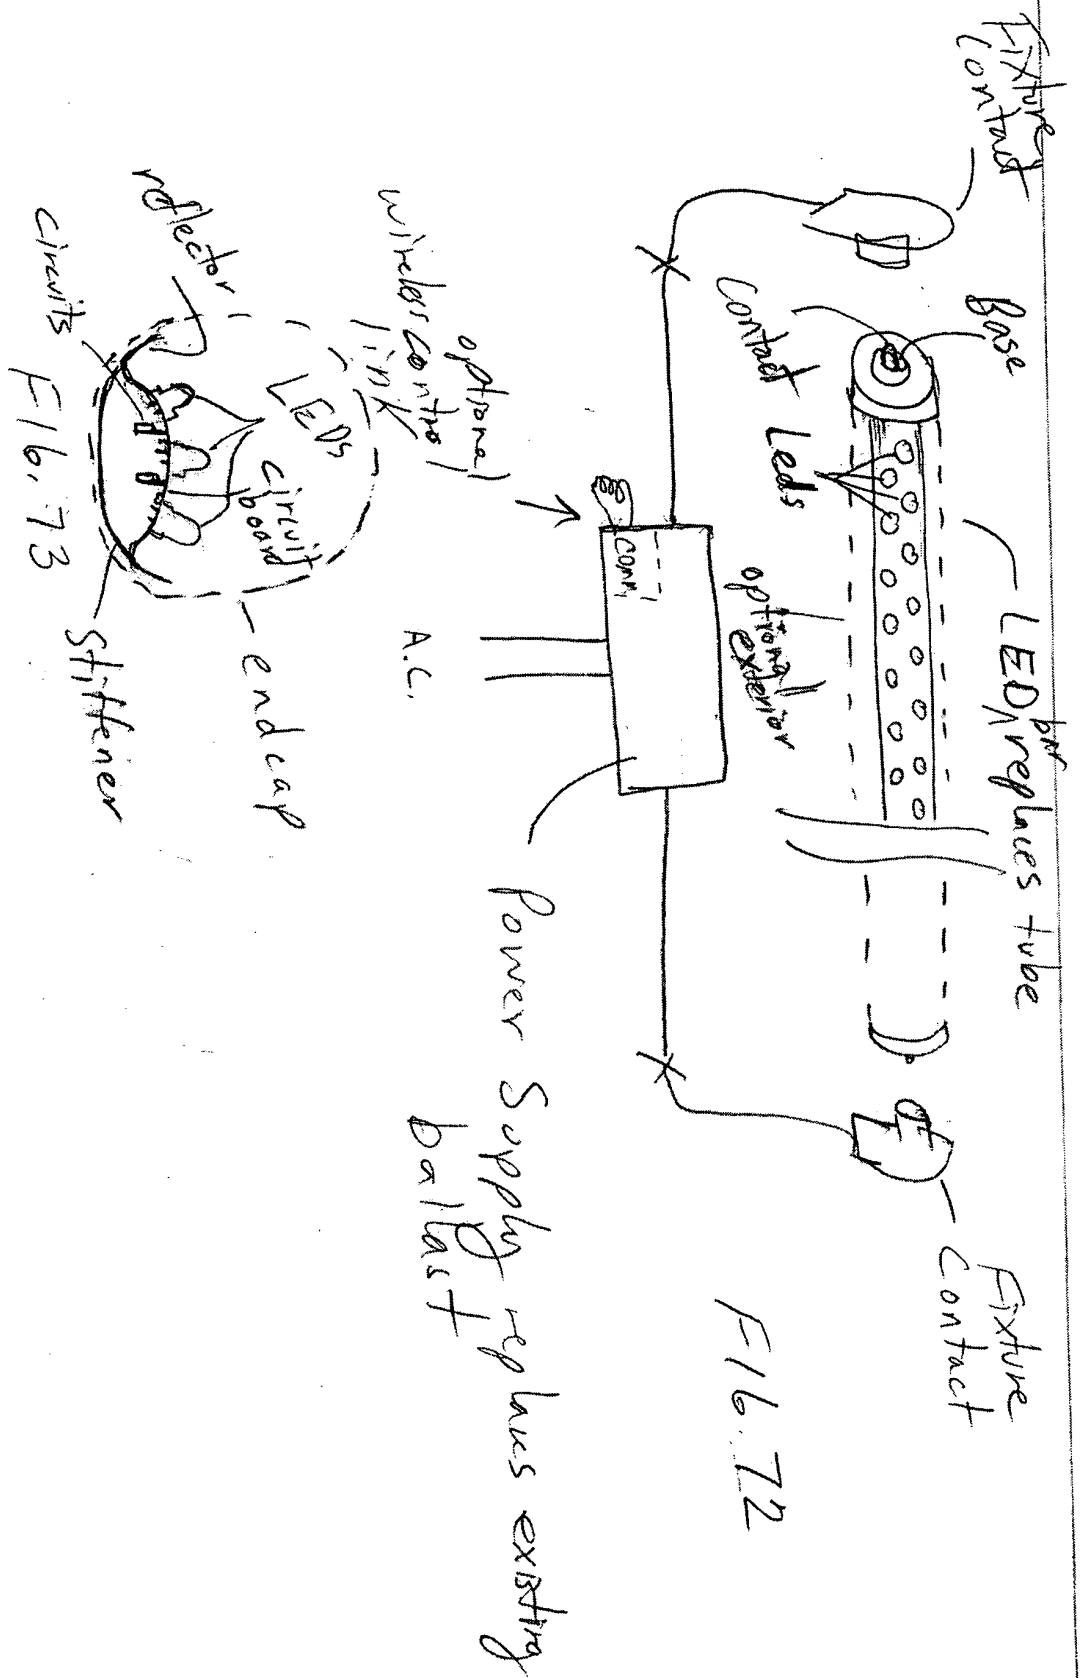 Fixture
Contact
Base
Contact
Leds
LED bar replaces tube
optional
exterior
Fixture
Contact
FIG. 72
optional
wireless control
link
comm
A.C.
Power Supply replaces existing
ballast
reflector
circuits
LEDs
circuit
board
endcap
Stiffener
FIG. 73